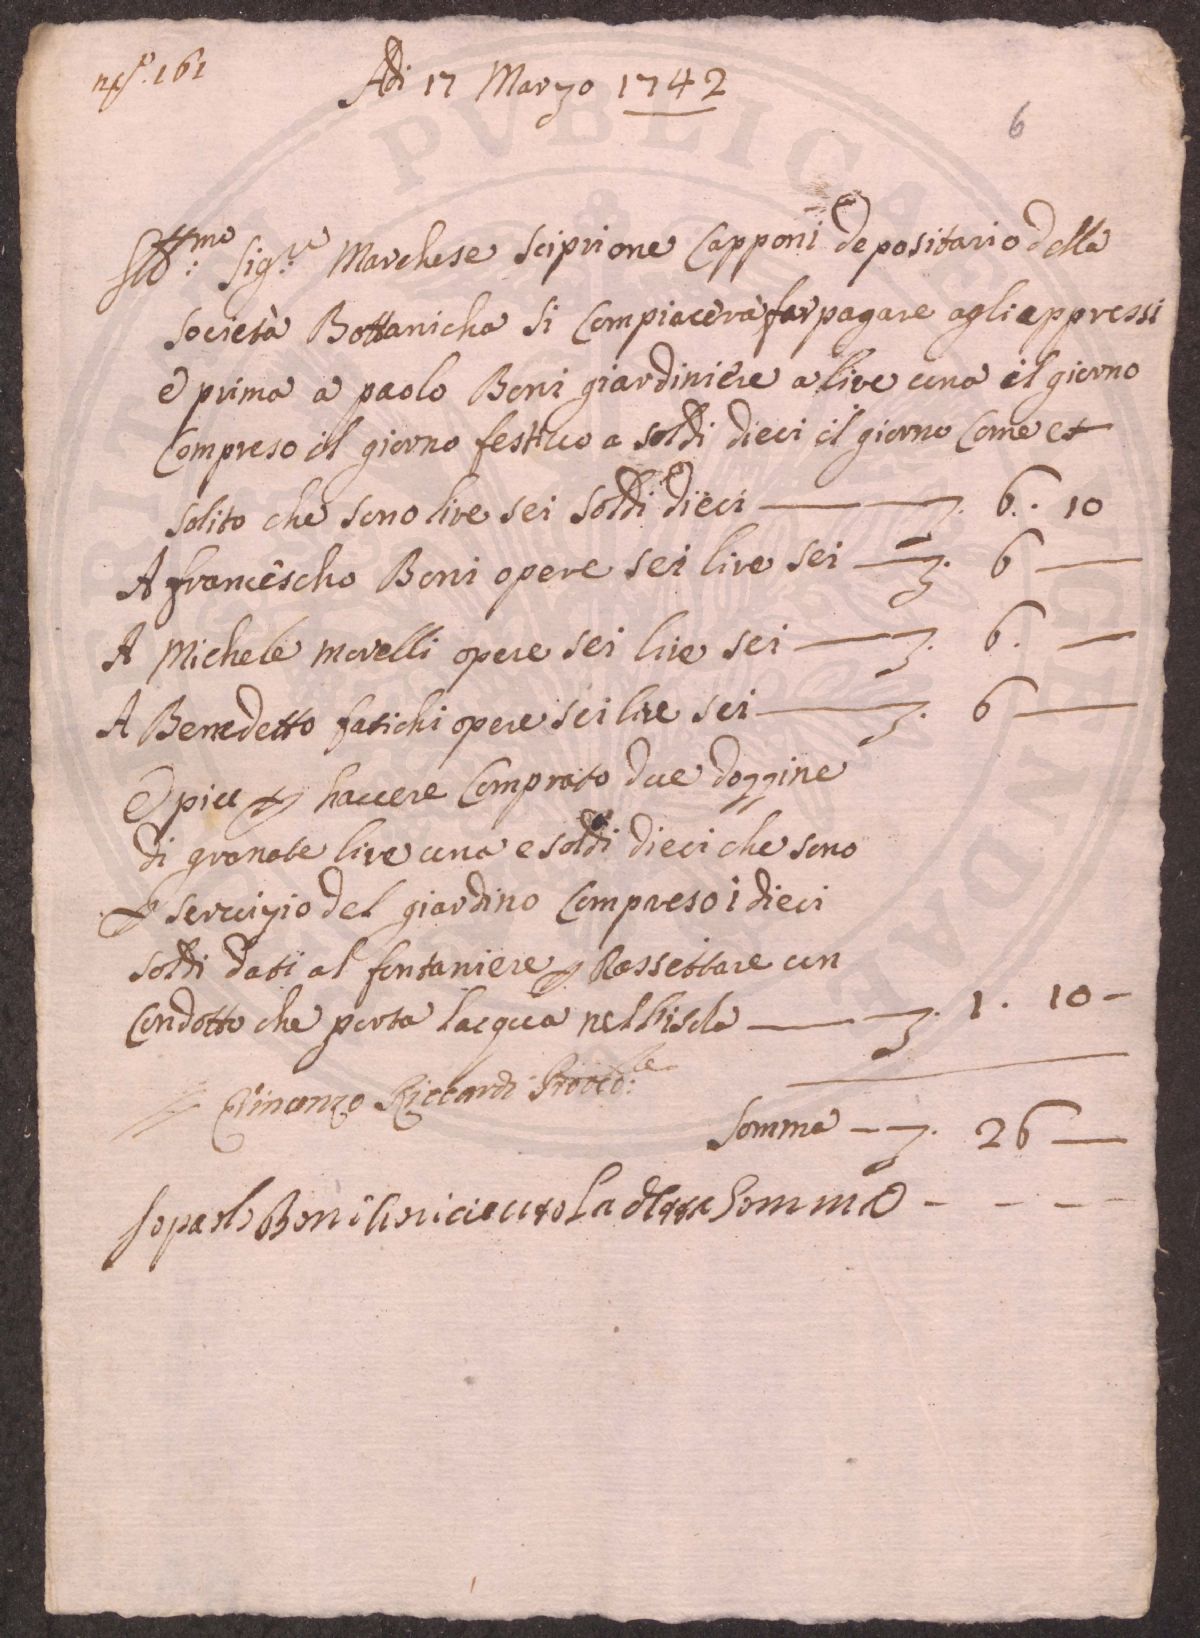 nº. 161
Adi 17 Marzo 1742
6
Illmo: Sig:re Marchese Sciprione Capponi depositario della
società Bottanicha si Compiacerà far pagare agli appressi
e prima a paolo Boni giardiniere a lire una il giorno
Compreso il giorno festiuo a soldi dieci il giorno Come et
solito che sono lire sei soldi dieci — 6. 10
A francescho Boni opere sei lire sei — 6 —
A Michele morelli opere sei lire sei — 6. —
A Benedetto fatichi opere sei lire sei — 6 —
E piu p hauere Comprato due dozzine
di granate lire una e soldi dieci che sono
p seruizio del giardino Compreso i dieci
soldi dati al fontaniere p Rassettare un
Condotto che porta lacqua nellisola — 1. 10 —
Vincenzo Riccardi Proved:re
Somma — 26 —
Io paolo Boni o riceuuto La detta Somma - - - -